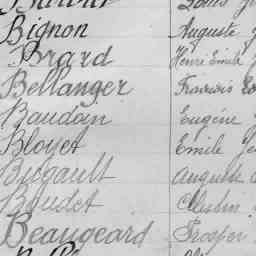 Bignon Auguste
Brard Henri Emile
Bellanger François
Baudan Eugène
Blouet Emile
Bugault Auguste
Boudet
Beaugeard Prosper